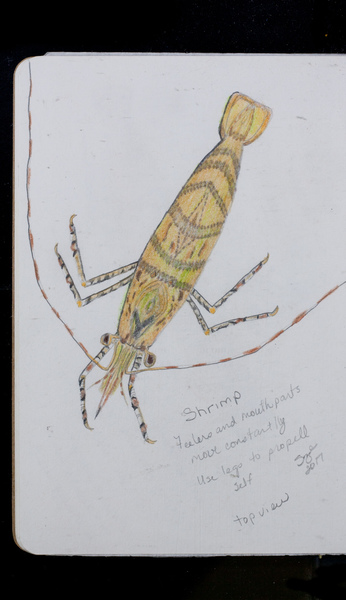 Shrimp
Feelers and mouthparts
move constantly
Use legs to propell
self
2017
top view